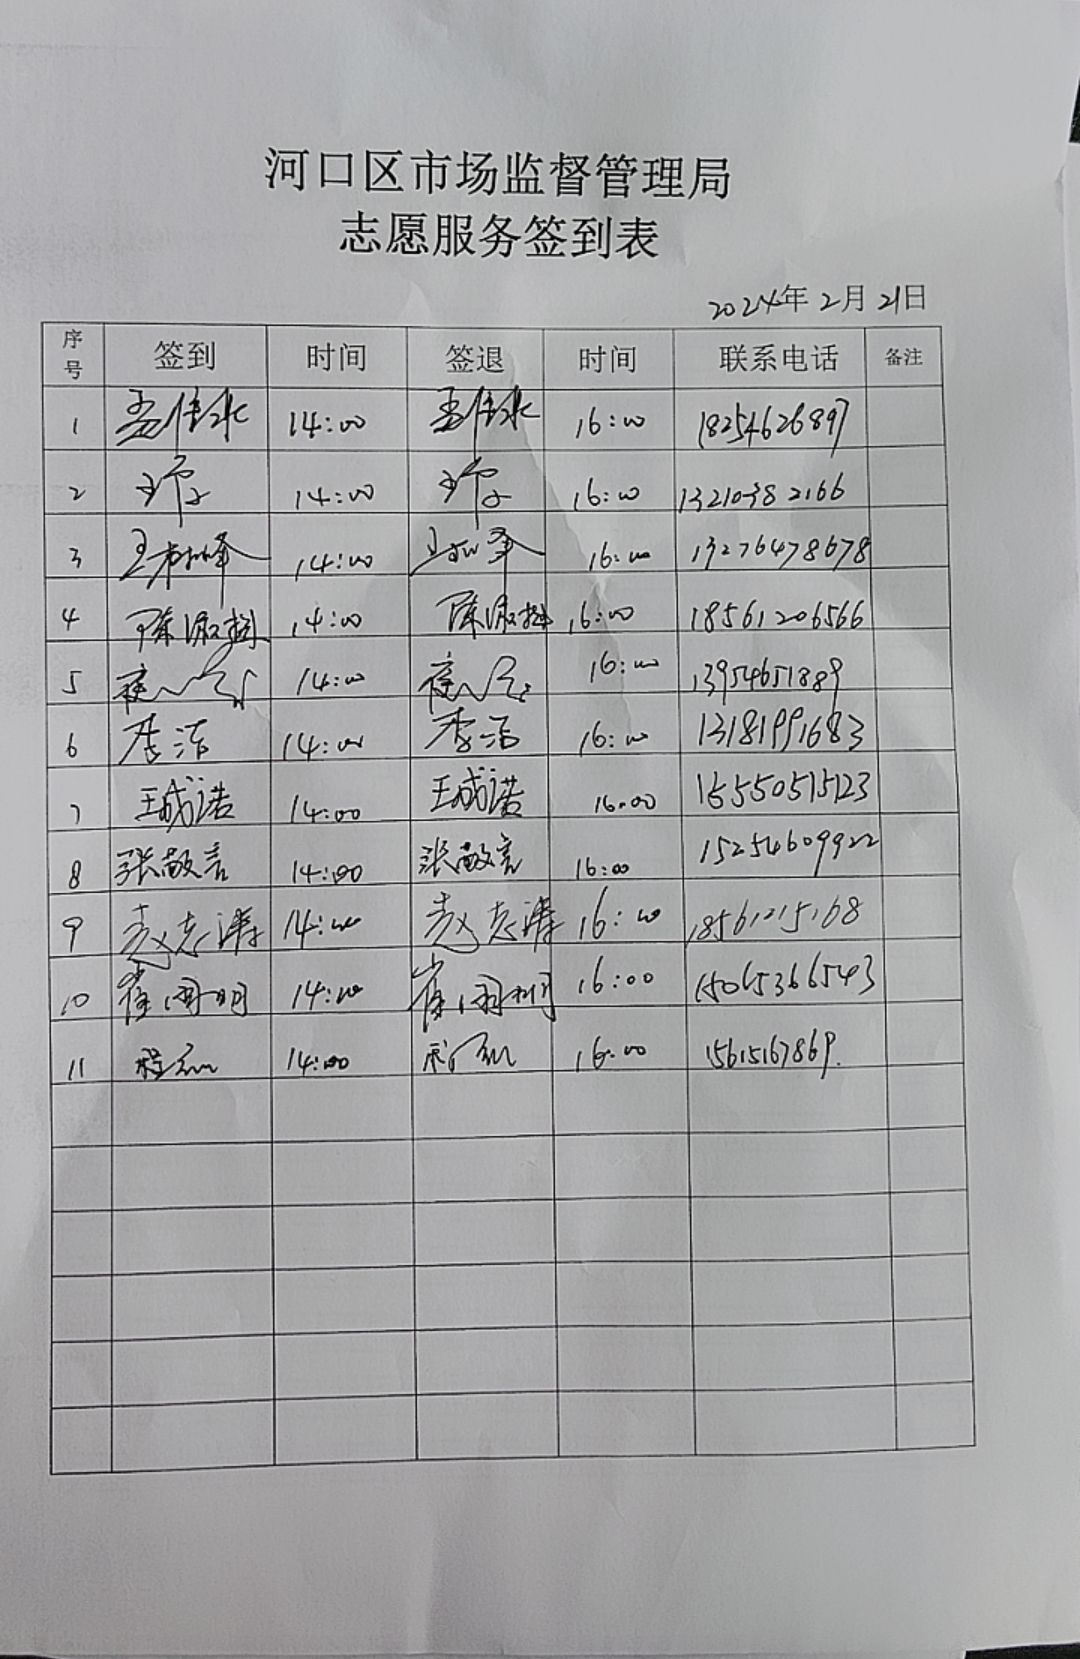 河口区市场监督管理局
志愿服务签到表
2024年2月21日
序号 签到 时间 签退 时间 联系电话 备注
1 14:00 16:00 18254626897
2 14:00 16:00 13210382166
3 14:00 16:00 13276478678
4 陈淑梅 14:00 陈淑梅 16:00 18561206566
5 14:00 16:00 13954651889
6 李洁 14:00 李洁 16:00 13181991683
7 王成诺 14:00 王成诺 16:00 15550515123
8 张敬言 14:00 张敬言 16:00 15254609922
9 赵志涛 14:00 赵志涛 16:00 18561215168
10 崔国明 14:00 崔国明 16:00 15065366543
11 14:00 16:00 15615167869.